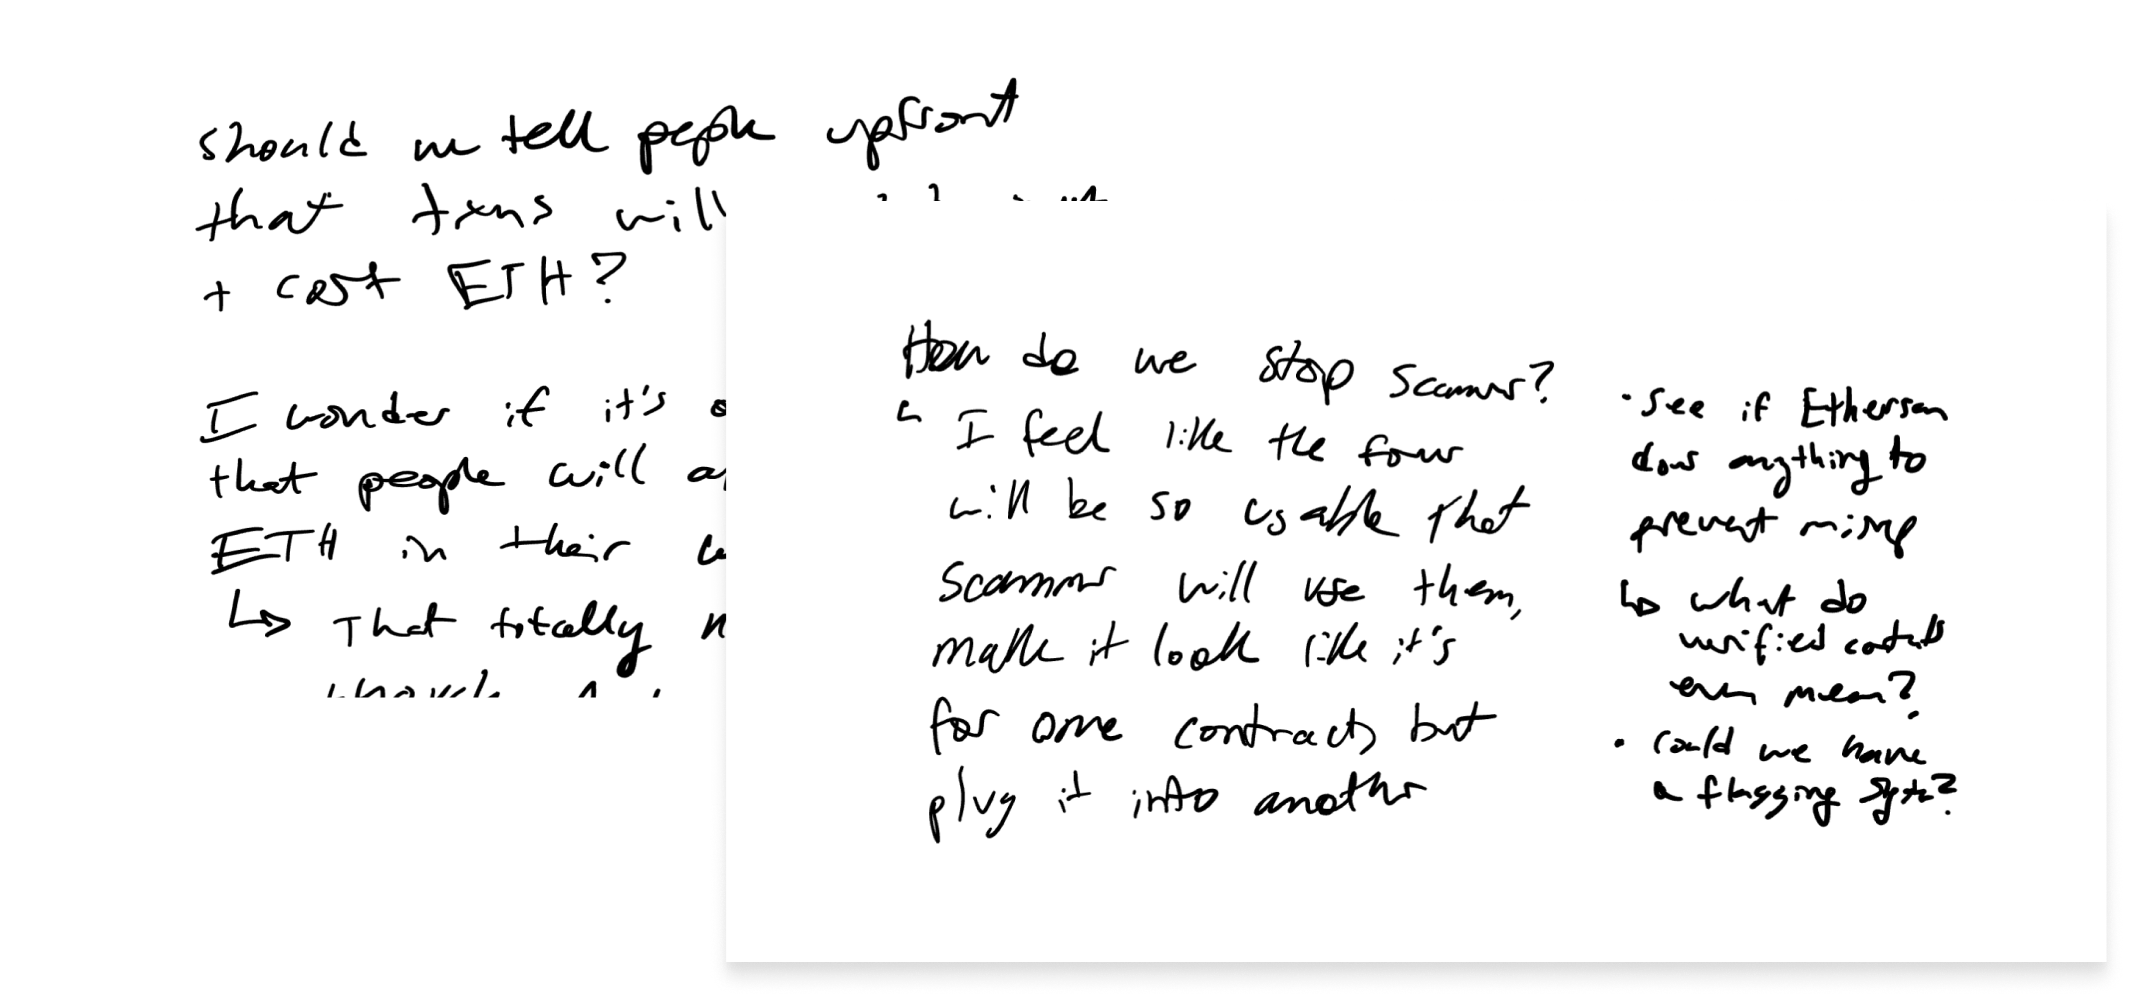 should we tell people upfront
that txns will
+ cost ETH?
I wonder if it's
that people will
ETH in their
↳ That totally
How do we stop scammers?
↳ I feel like the forms
will be so usable that
scammers will use them,
make it look like it's
for one contract, but
plug it into another
• See if Etherscan
does anything to
prevent misrep
↳ what do
verified contracts
even mean?
• Could we have
a flagging system?